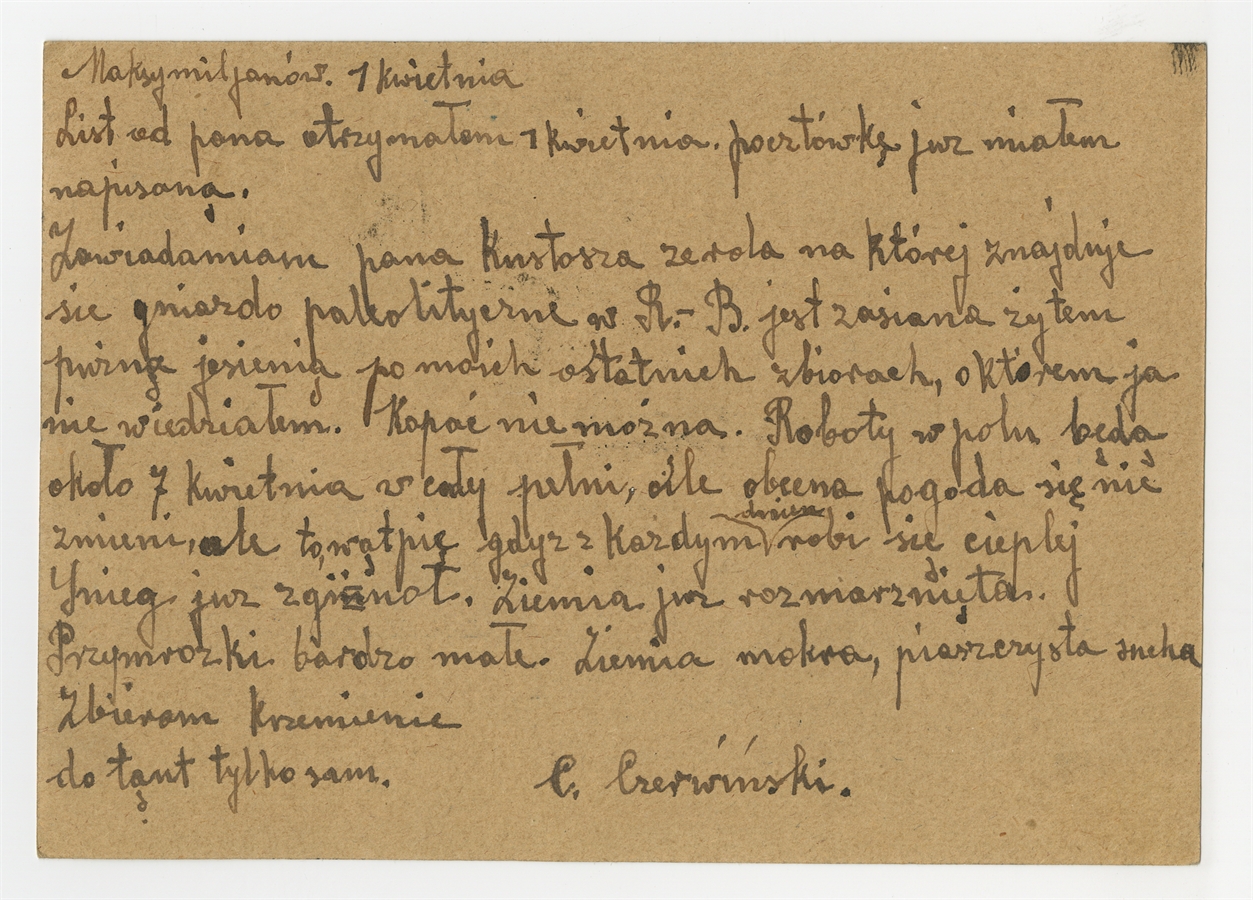 Maksymiljanów. 1 kwietnia
List od pana otrzymałem 1 kwietnia. pocztówkę juz miałem
napisaną.
Zawiadamiam pana Kustosza ze rola na której znajduje
sie gniazdo paleolityczne w R.-B. jest zasiana żytem
puzną jesienią po moich ostatnich zbiorach, o którem ja
nie wiedziałem. Kopać nie mozna. Roboty w polu będa
około 7 kwietnia w cały pełni, oile obecna pogoda się nie
zmieni, ale to, wątpię gdyz z kazdym dniem robi się cieplej
Snieg juz zginoł. Ziemia juz rozmarznięta.
Przymrozki bardzo małe. Ziemia mokra, piaszczysta sucha
Zbieram krzemienie
do tąnt tylko sam. C. Czerwiński.